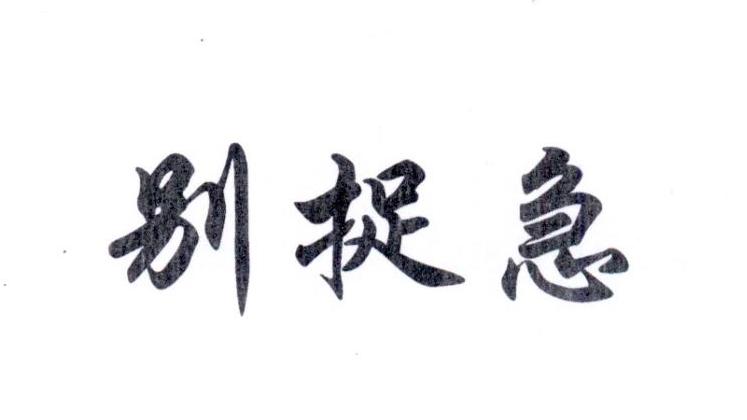 别捉急